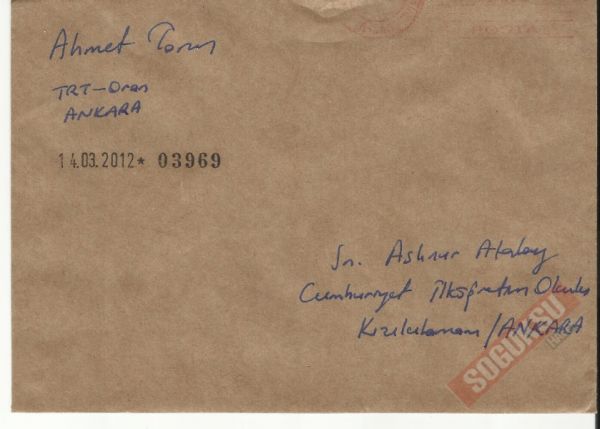 Ahmet Torun
TRT-Oran
ANKARA
14.03.2012* 03969
Sn. Aşknur Atalay
Cumhuriyet İlköğretim Okulu
Kızılcahamam/ANKARA
SOGUKSU